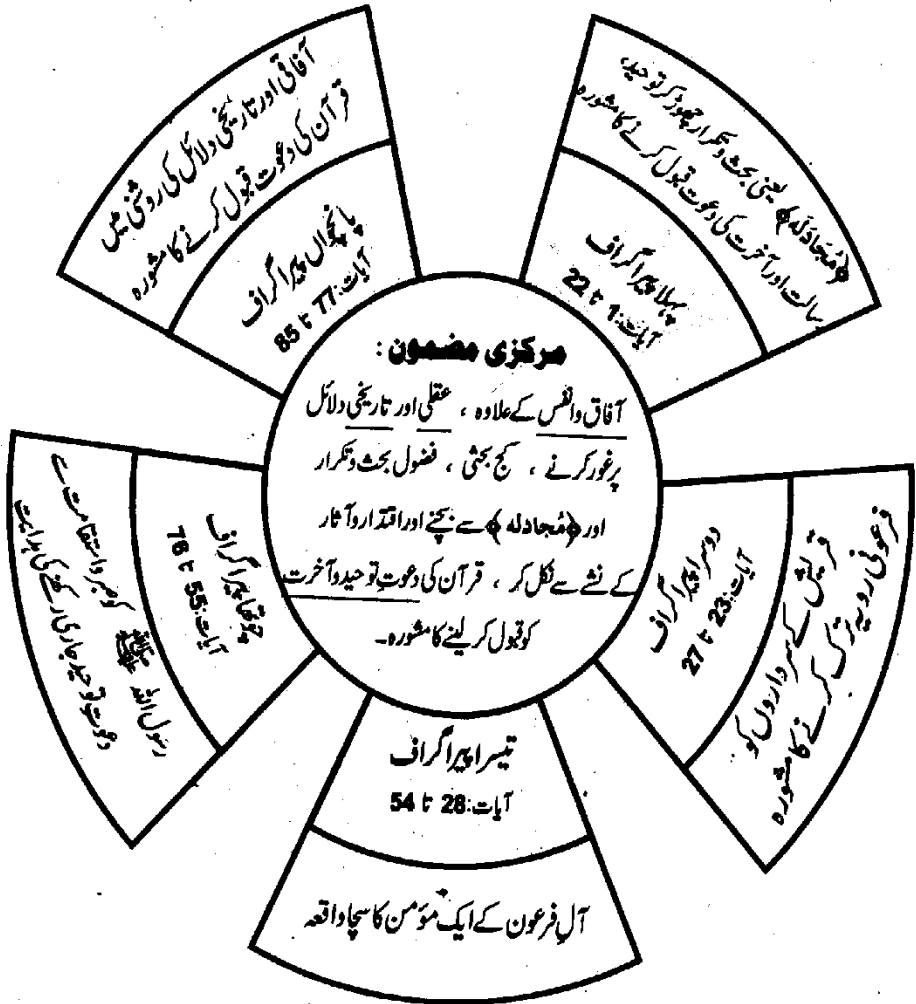 مرکزی مضمون :
آفاق وانفس کے علاوہ ، عقلی اور تاریخی دلائل
پر غور کرنے ، کج بحثی ، فضول بحث و تکرار
اور ﴿مُجادلہ﴾ سے بچنے اور اقتدار و آثار
کے نشے سے نکل کر ، قرآن کی دعوتِ توحید و آخرت
کو قبول کر لینے کا مشورہ۔
﴿مُجَادَلَہ﴾ یعنی بحث و تکرار چھوڑ کر توحید،
رسالت اور آخرت کی دعوت قبول کرنے کا مشورہ
پہلا پیراگراف
آیات:1 تا 22
قریش کے سرداروں کو
فرعونی رویہ ترک کرنے کا مشورہ
دوسرا پیراگراف
آیات:23 تا 27
تیسرا پیراگراف
آیات:28 تا 54
آلِ فرعون کے ایک مؤمن کا سچا واقعہ
چوتھا پیراگراف
آیات:55 تا 76
رسول اللہ ﷺ کو صبر واستقامت سے
دعوتِ توحید جاری رکھنے کی ہدایت
پانچواں پیراگراف
آیات:77 تا 85
آفاقی اور تاریخی دلائل کی روشنی میں
قرآن کی دعوت قبول کرنے کا مشورہ